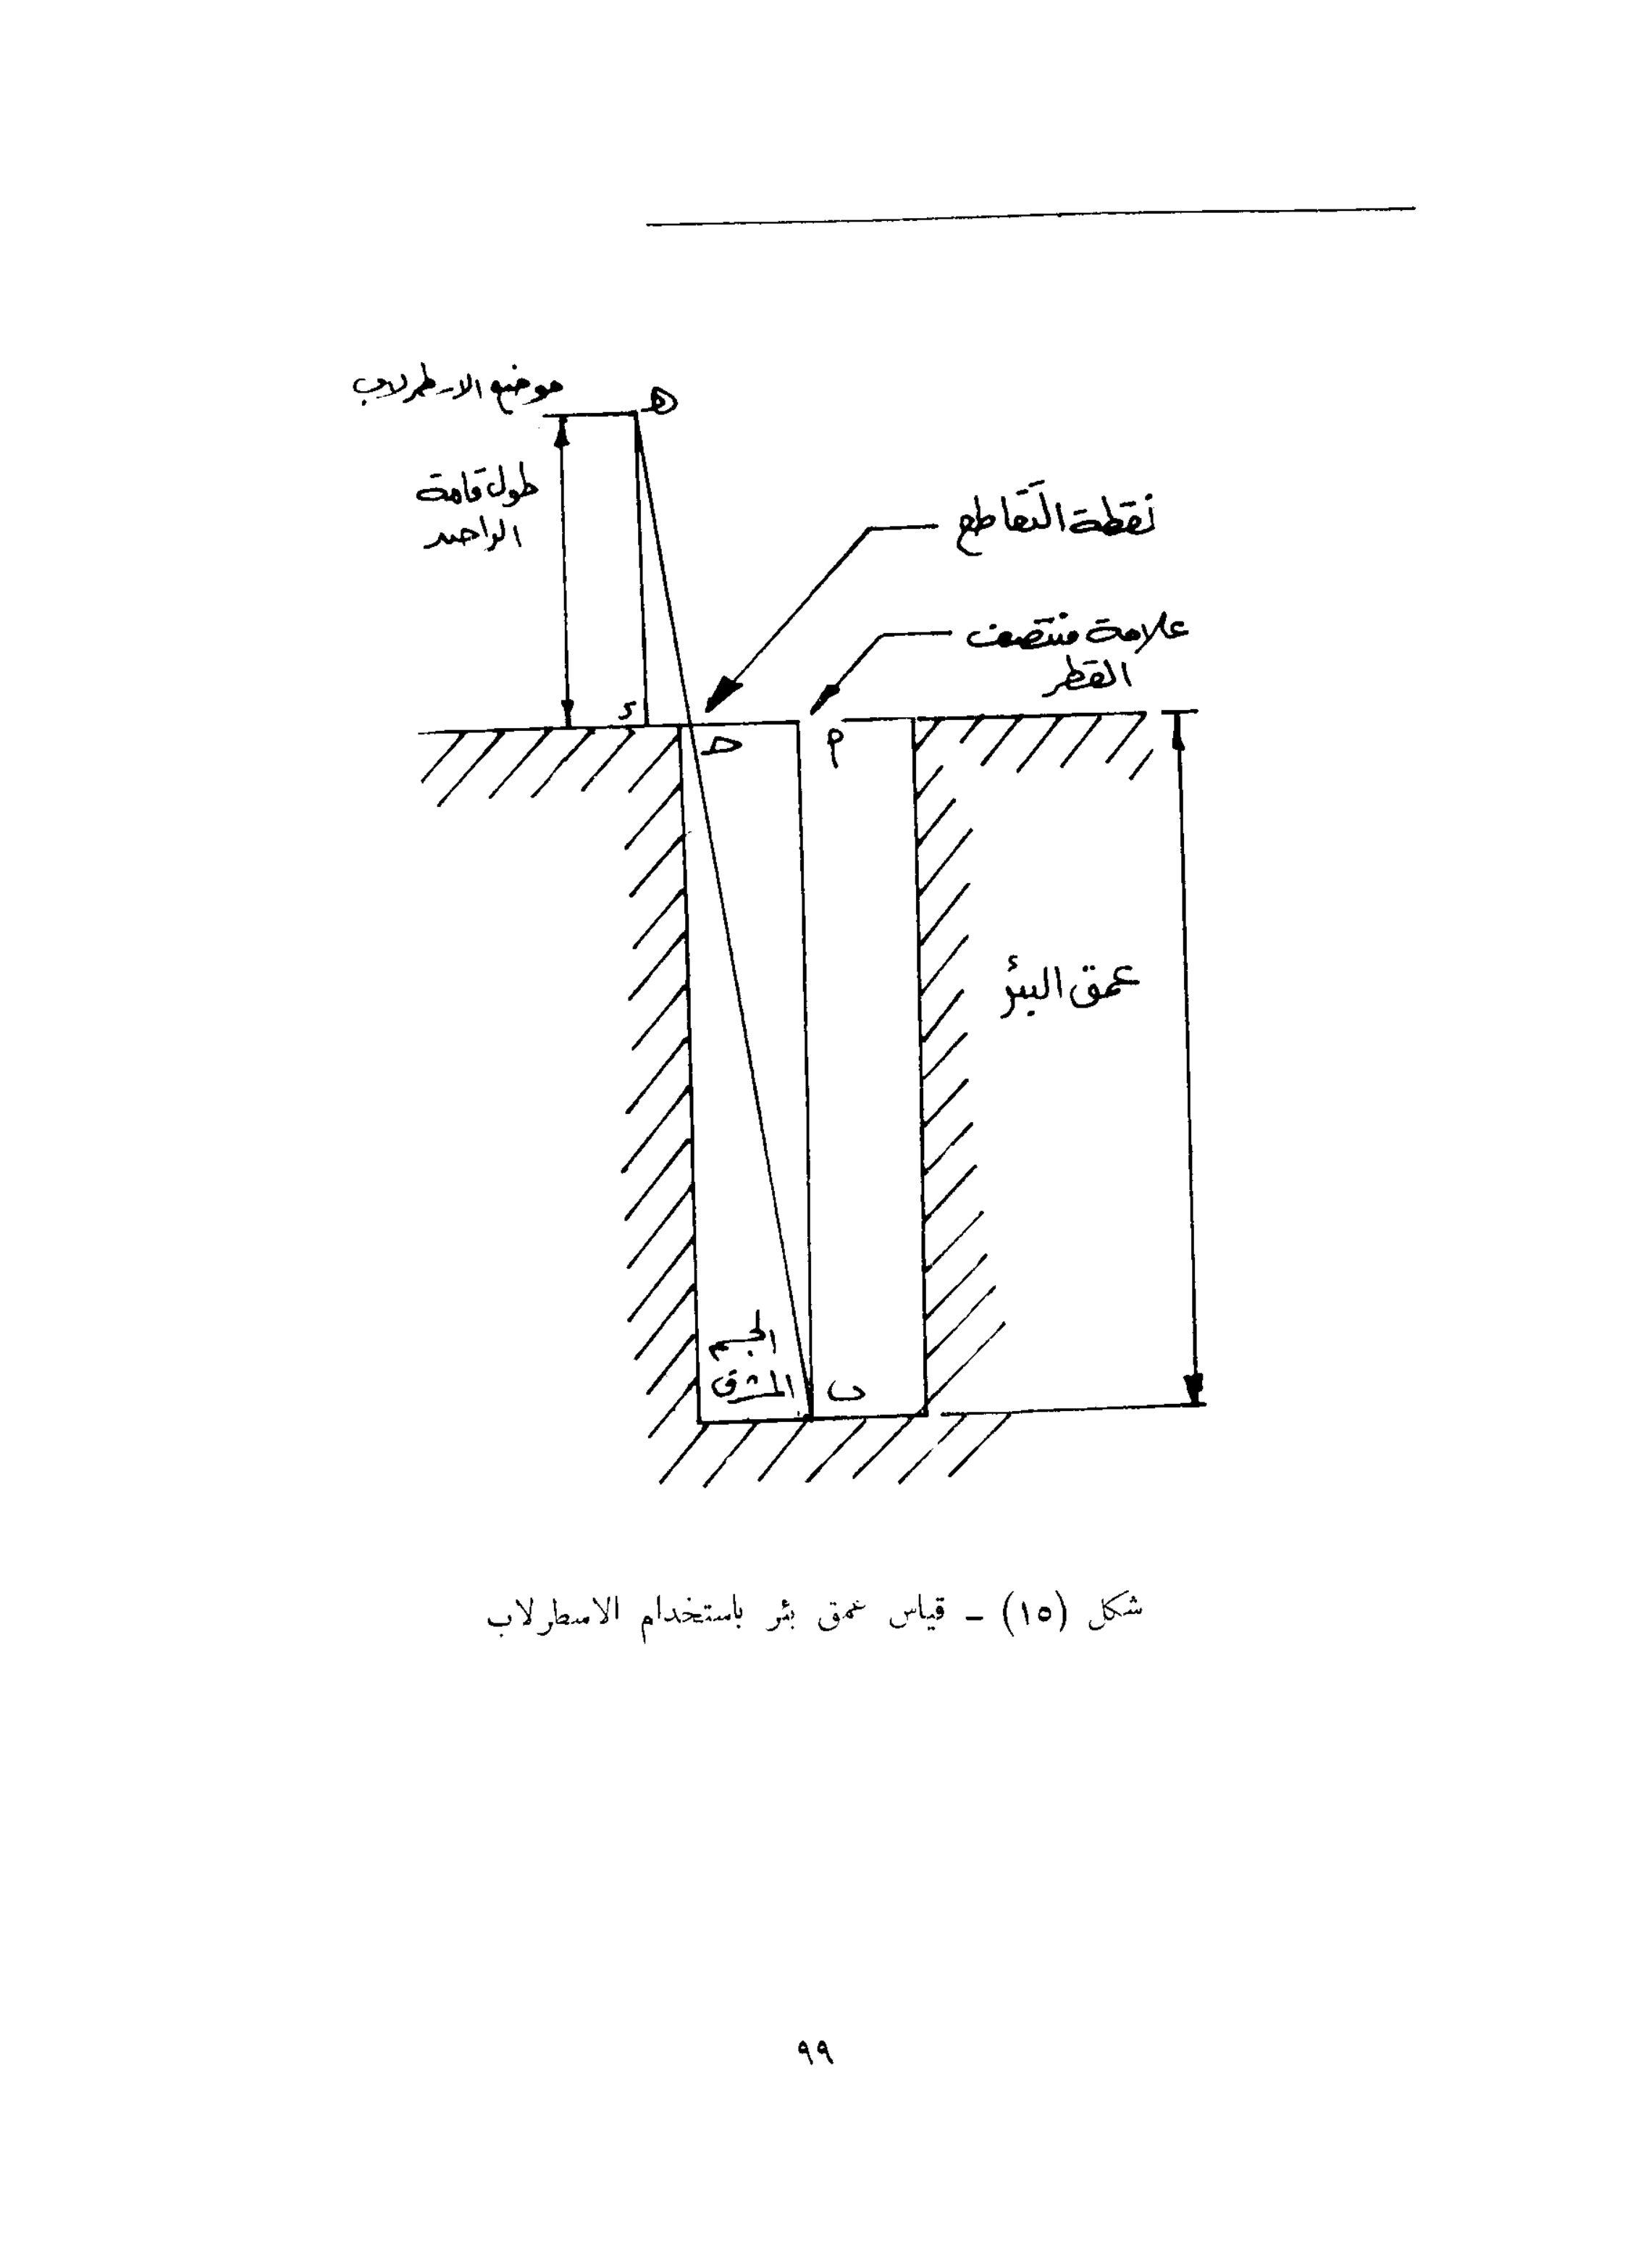 موضع الاسطرلاب
ه
طول قامة
الراصد
نقطة التقاطع
علامة منتصف
القطر
د
ح
م
عمق البئر
الجسم
المشرق
ب
شكل (١٥) – قياس عمق بئر باستخدام الاسطرلاب
٩٩